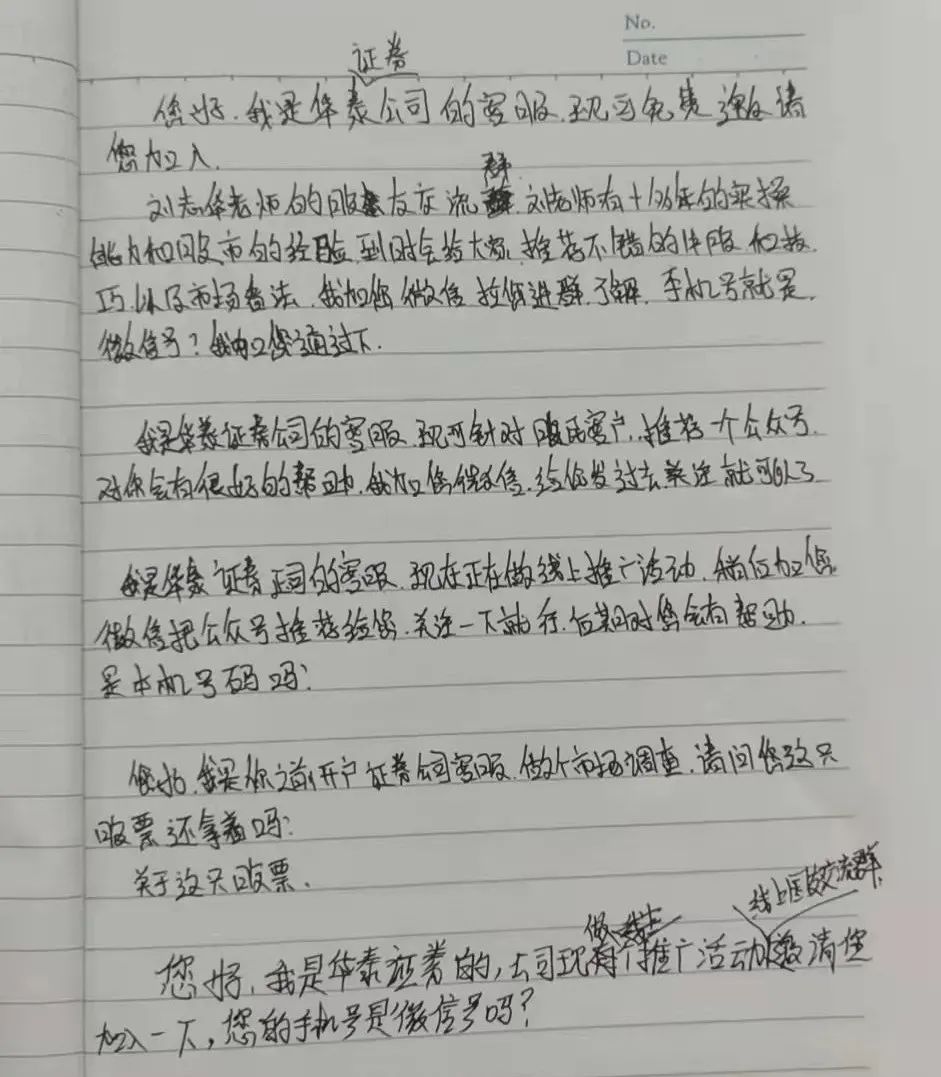 No.
Date
证券
您好.我是华泰公司的客服.现司免费邀请
您加入.
群
刘志华老师的股友交流 刘老师有十多年的实操
能力和股市的经验.到时会给大家推荐不错的牛股和技
巧以及市场看法.我加您微信拉您进群了解.手机号就是
微信号?我加您通过下.
我是华泰证券公司的客服.现司针对股民客户.推荐一个公众号.
对你会有很好的帮助.我加您微信.给您发过去关注就可以了
我是华泰证券公司的客服.现在正在做线上推广活动.稍后加您
微信把公众号推荐给您.关注一下就行.后期对您会有帮助.
是本机号码吗?
您好.我是你之前开户证券公司客服.做个市场调查.请问您这只
股票还拿着吗?
关于这只股票.
线上股友交流群
做线上
您好,我是华泰证券的,公司现有推广活动邀请您
加入一下,您的手机号是微信号吗?